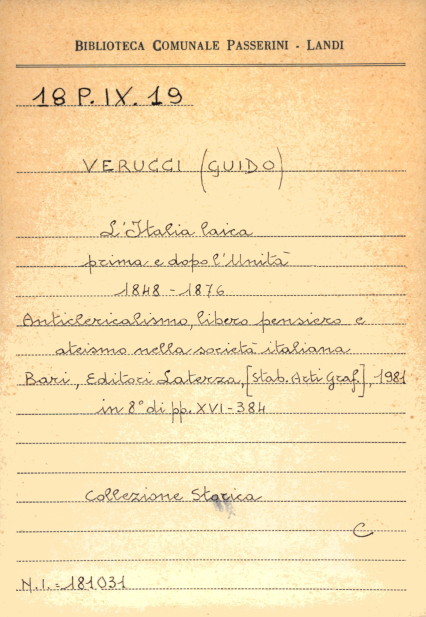 BIBLIOTECA COMUNALE PASSERINI - LANDI
18 P. IX. 19
VERUCCI (GUIDO)
L'Italia laica
prima e dopo l'Unità
1848 - 1876
Anticlericalismo, libero pensiero e
ateismo nella società italiana
Bari, Editori Laterza, [Stab. Arti Graf.], 1981
in 8° di pp. XVI-384
Collezione Storica
C
N.I.= 181031